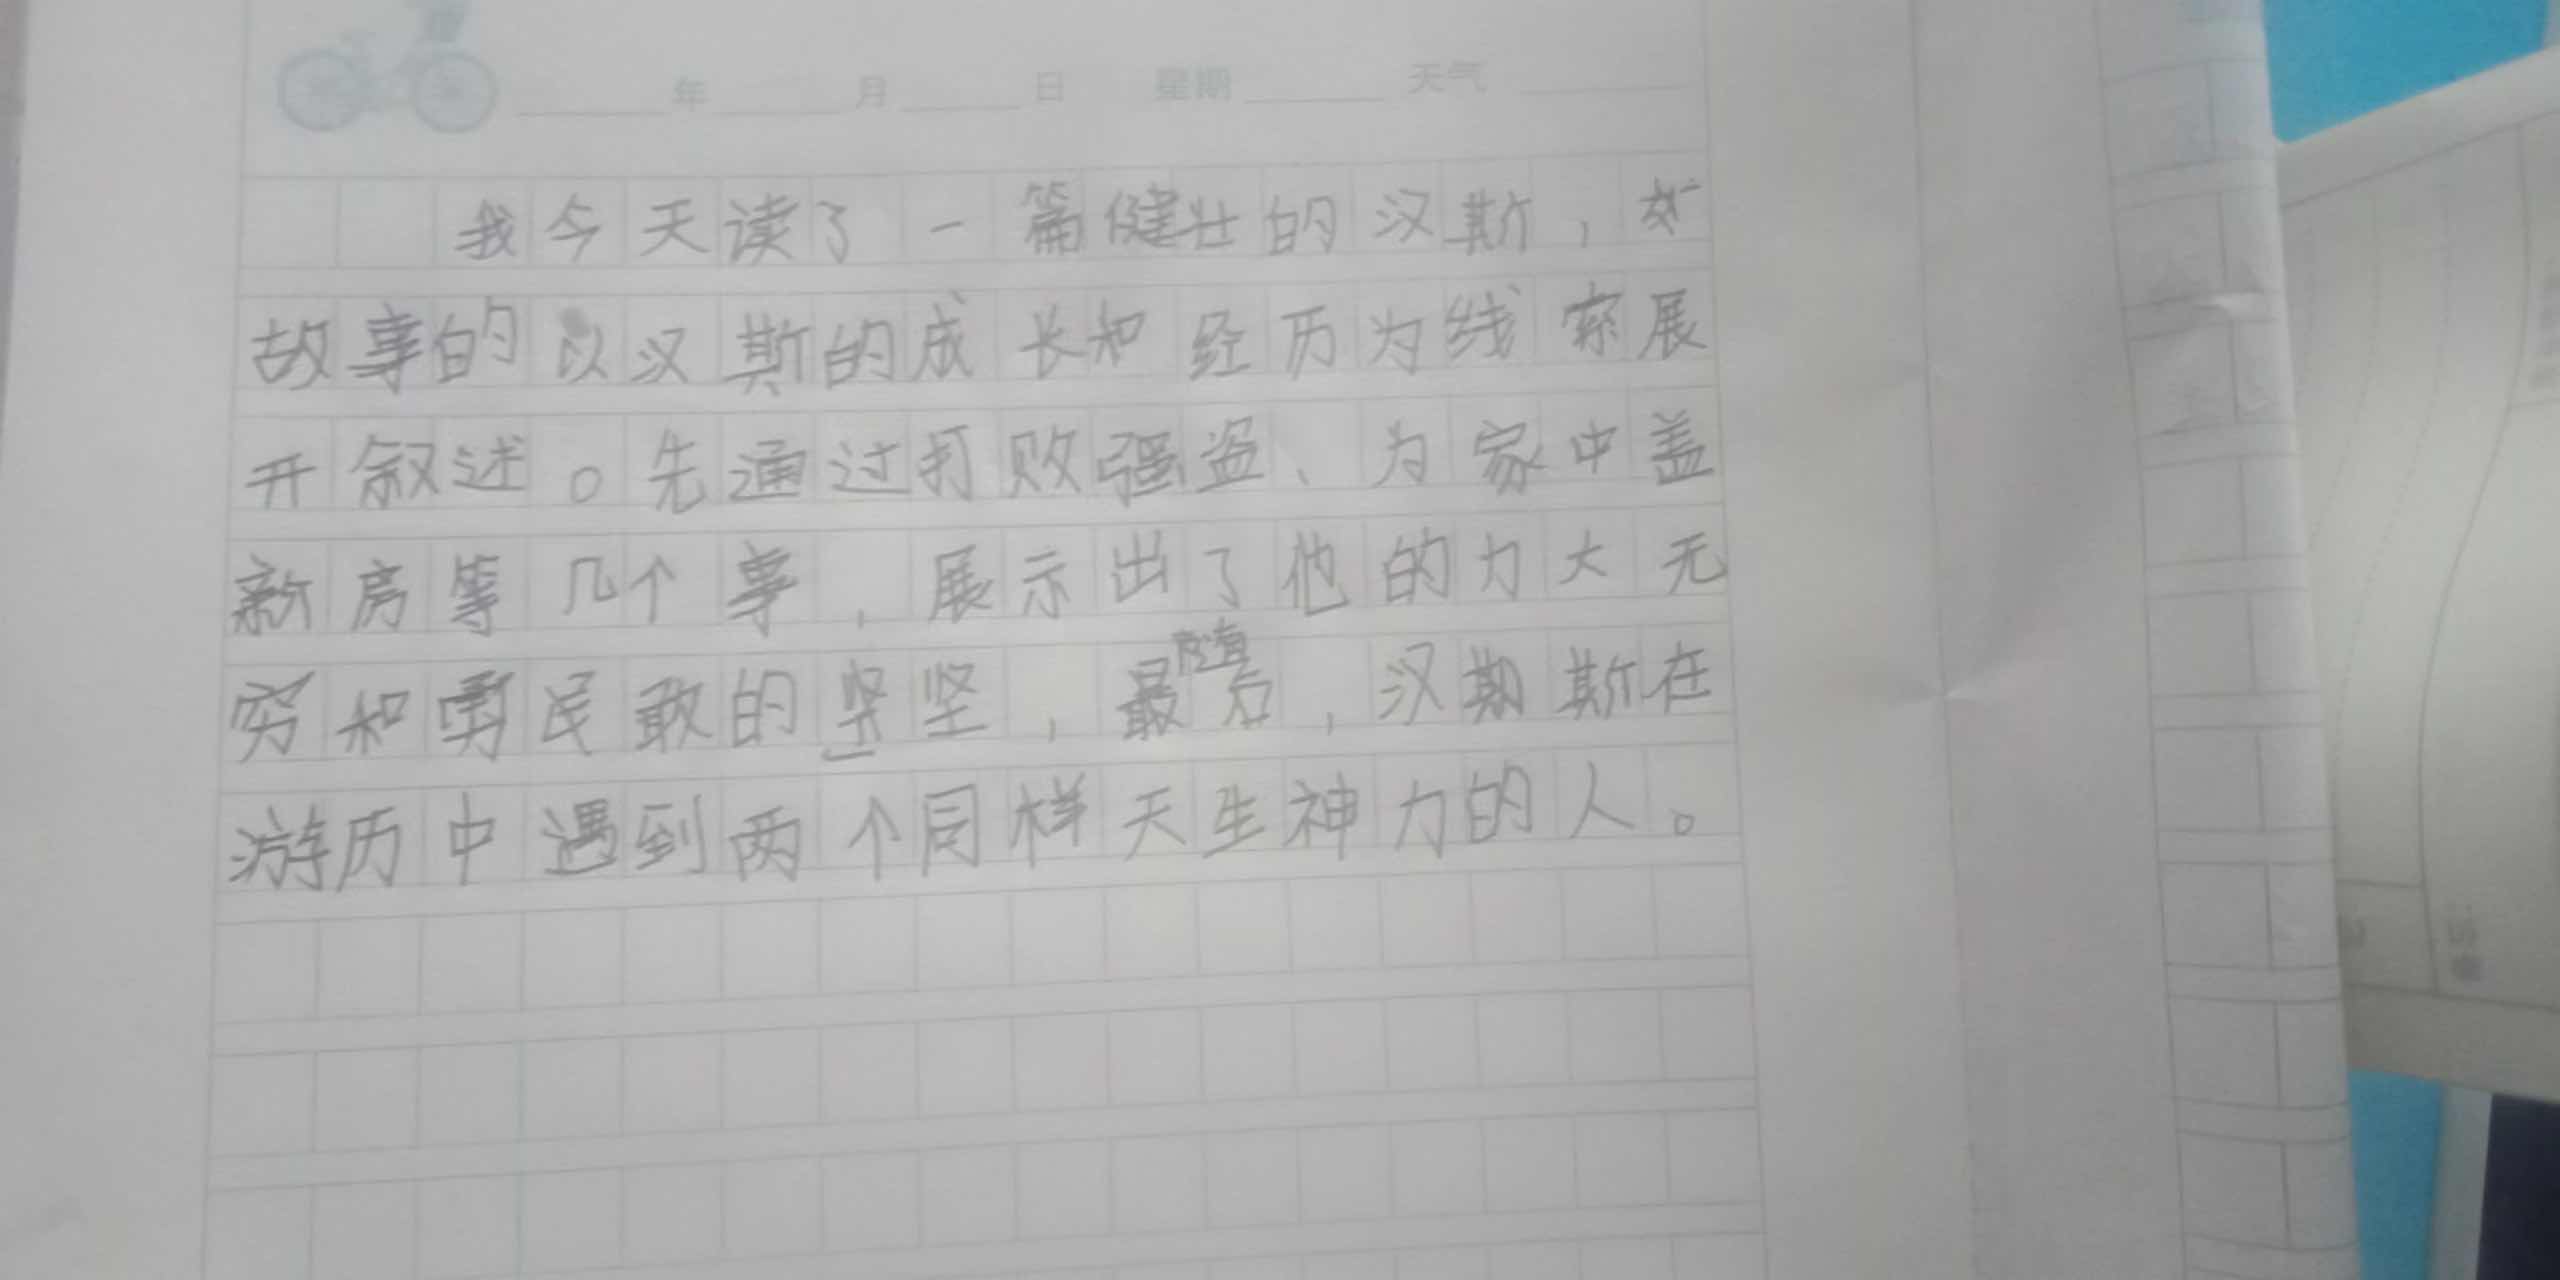 年 月 日 星期 天气
我今天读了一篇健壮的汉斯，
故事的以汉斯的成长和经历为线索展
开叙述。先通过打败强盗、为家中盖
新房等几个事，展示出了他的力大无
穷和勇民敢的坚坚，最随后，汉期斯在
游历中遇到两个同样天生神力的人。